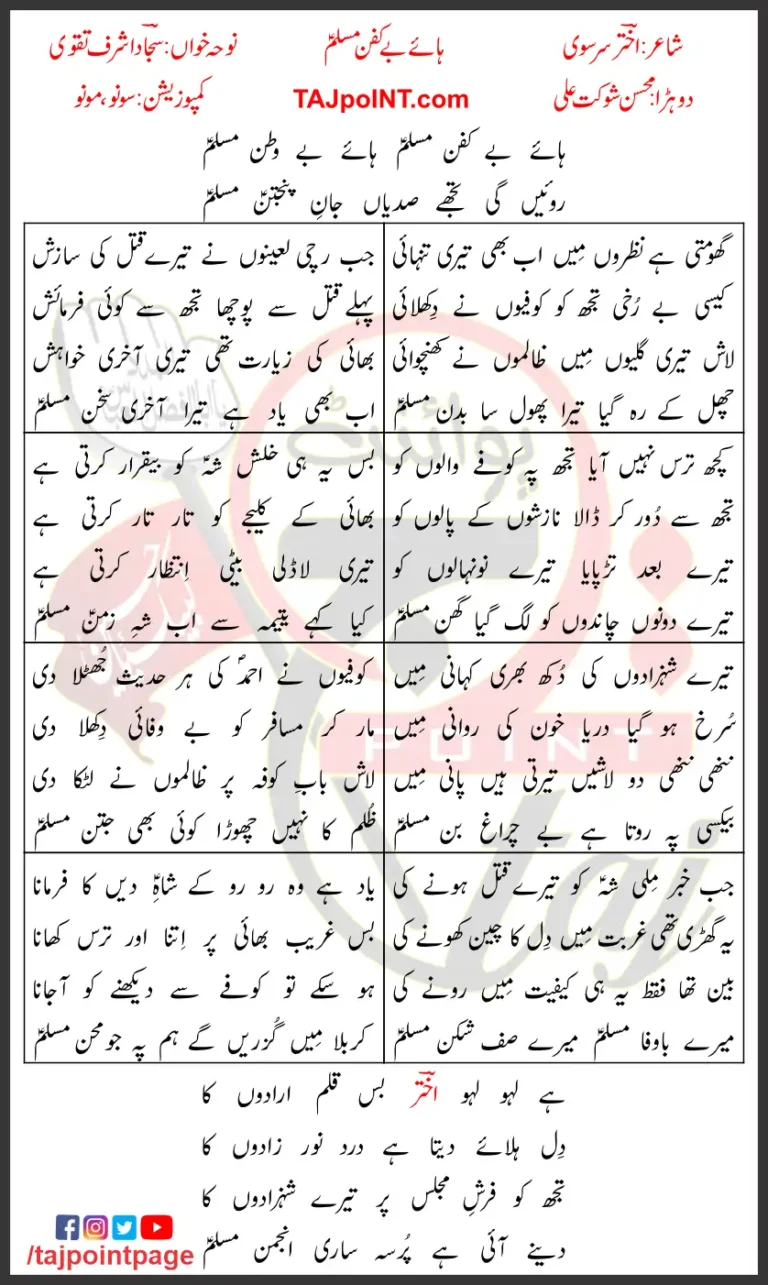 شاعر: اختر سرسوی
ہائے بے کفن مسلمؑ
نوحہ خواں: سجاد اشرف نقوی
دوہڑا: محسن شوکت علی
TAJpoINT.com
کمپوزیشن: سونو، مونو
ہائے بے کفن مسلمؑ ہائے بے وطن مسلمؑ
روئیں گی تجھے صدیاں جانِ پنجتنؑ مسلمؑ
گھومتی ہے نظروں مِیں اب بھی تیری تنہائی
کیسی بے رُخی تجھ کو کوفیوں نے دِکھلائی
لاش تیری گلیوں مِیں ظالموں نے کھنچوائی
چھل کے رہ گیا تیرا پھول سا بدن مسلمؑ
جب رچی لعینوں نے تیرے قتل کی سازش
پہلے قتل سے پوچھا تجھ سے کوئی فرمائش
بھائی کی زیارت تھی تیری آخری خواہش
اب بھی یاد ہے تیرا آخری سخن مسلمؑ
کچھ ترس نہیں آیا تجھ پہ کوفے والوں کو
تجھ سے دُور کر ڈالا نازشوں کے پالوں کو
تیرے بعد تڑپایا تیرے نونہالوں کو
تیرے دونوں چاندوں کو لگ گیا گھن مسلمؑ
بس یہ ہی خلش شہؑ کو بیقرار کرتی ہے
بھائی کے کلیجے کو تار تار کرتی ہے
تیری لاڈلی بیٹی اِنتظار کرتی ہے
کیا کہے یتیمہ سے اب شہِ زمنؑ مسلمؑ
تیرے شہزادوں کی دُکھ بھری کہانی مِیں
سُرخ ہو گیا دریا خون کی روانی مِیں
ننھی ننھی دو لاشیں تیرتی ہیں پانی مِیں
بیکسی پہ روتا ہے بے چراغ بن مسلمؑ
کوفیوں نے احمدؐ کی ہر حدیث جُھٹلا دی
مار کر مسافر کو بے وفائی دِکھلا دی
لاش بابِ کوفہ پر ظالموں نے لٹکا دی
ظُلم کا نہیں چھوڑا کوئی بھی جتن مسلمؑ
جب خبر مِلی شہؑ کو تیرے قتل ہونے کی
یہ گھڑی تھی غربت مِیں دِل کا چین کھونے کی
بین تھا فقط یہ ہی کیفیت مِیں رونے کی
میرے باوفا مسلمؑ میرے صف شکن مسلمؑ
یاد ہے وہ رو رو کے شاہِؑ دیں کا فرمانا
بس غریب بھائی پر اِتنا اور ترس کھانا
ہو سکے تو کوفے سے دیکھنے کو آجانا
کربلا مِیں گُزریں گے ہم پہ جو محن مسلمؑ
ہے لہو لہو اختر بس قلم ارادوں کا
دِل ہلائے دیتا ہے درد نور زادوں کا
تجھ کو فرشِ مجلس پر تیرے شہزادوں کا
دینے آئی ہے پُرسہ ساری انجمن مسلمؑ
/tajpointpage
پوائنٹ
POINT
taj